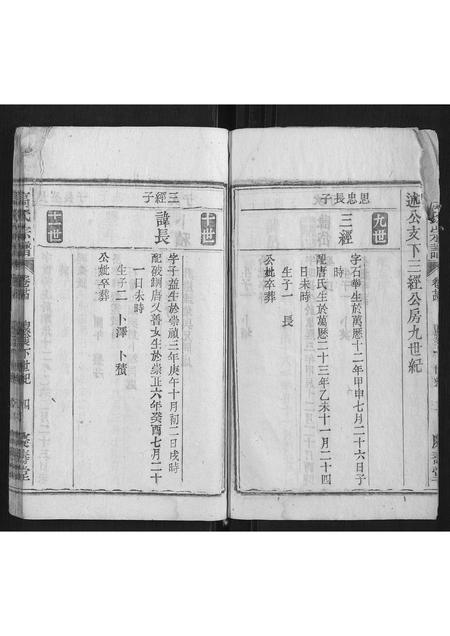 述公支下三經公房九世紀
九世
思忠長子
三經
字石華生於萬歷十二年甲申七月二十六日子
時
配唐氏生於萬歷二十三年乙未十一月二十四
日未時
生子一 長
公妣卒葬
慶壽堂
十世
三經子
諱長
字子益生於崇禎三年庚午十月初二日戌時
配破銅唐乂善女生於崇正六年癸酉七月二十
一日未時
生子二 卜澤 卜積
公妣卒葬
十一世
宗譜
卷
世紀
四
慶壽堂